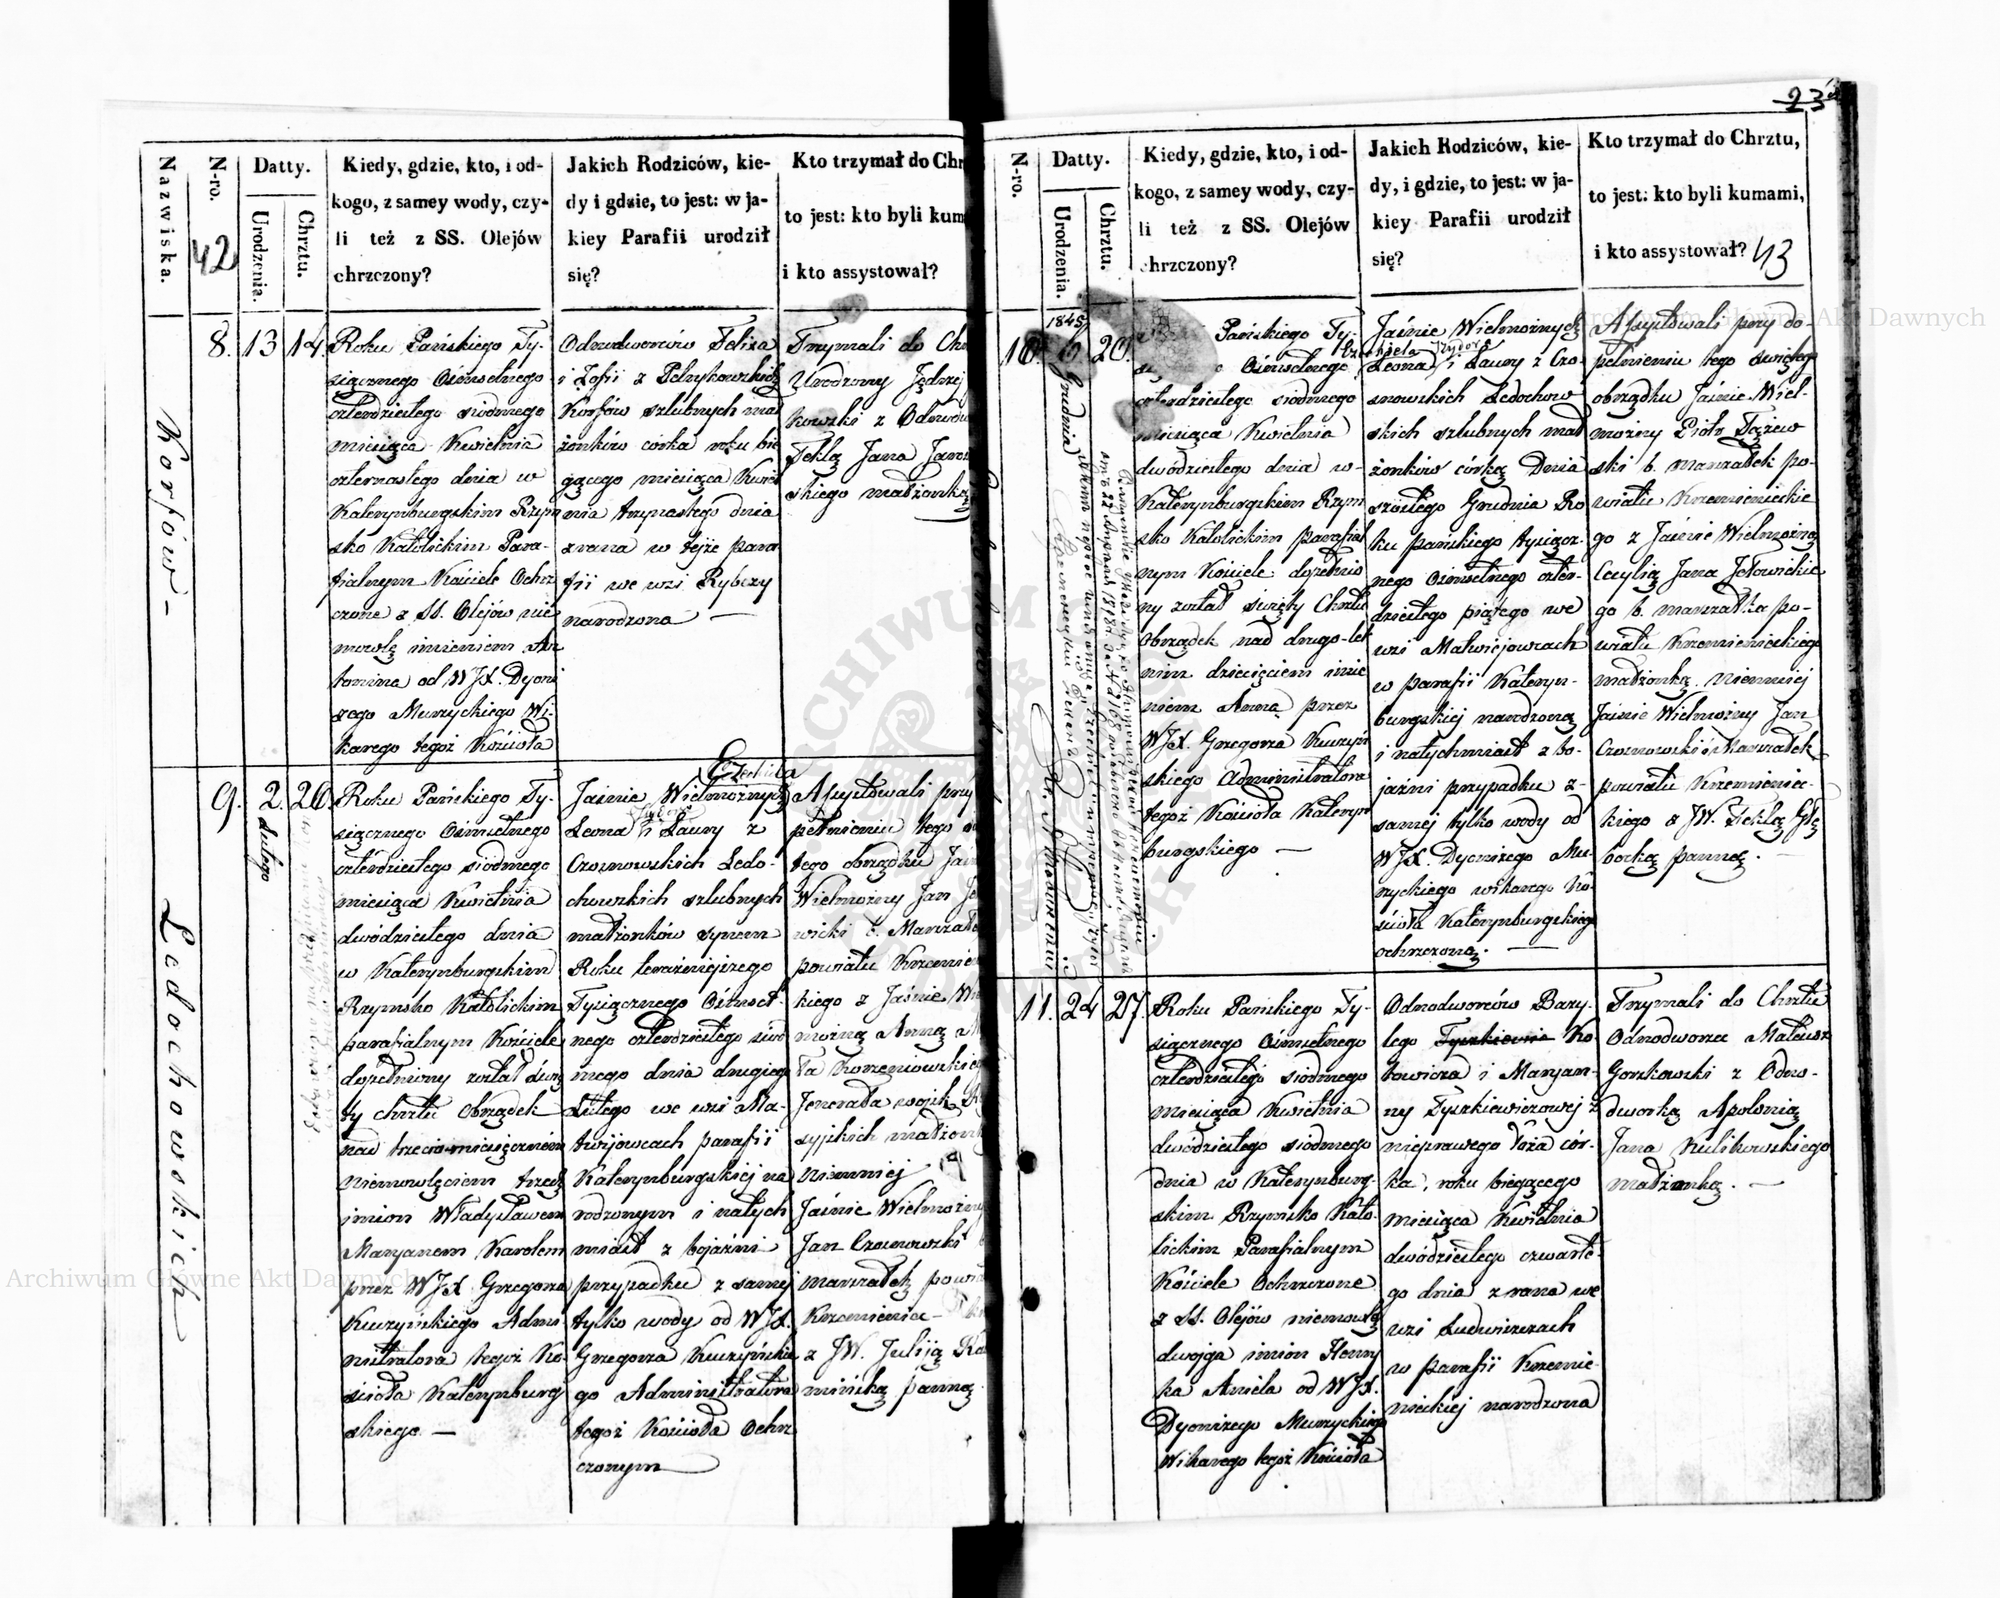 23
Nazwiska.
N-ro.
42
Datty.
Urodzenia.
Chrztu.
Kiedy, gdzie, kto, i od-
kogo, z samey wody, czy-
li też z SS. Olejów
chrzczony?
Jakich Rodziców, kie-
dy i gdzie, to jest: w ja-
kiey Parafii urodził
się?
Kto trzymał do Chr
to jest: kto byli kum
i kto assystował?
Korfów
8. 13 14.
Roku Pańskiego Ty-
siącznego Ośmsetnego
czterdziestego siodmego
miesiąca Kwietnia
czternastego dnia w
Katerynburgskim Rzym
sko Katolickim Para-
fialnym Kościele Ochrz
czone z SS. Olejów nie
mowlę imieniem An
tonina od WJX. Dyoni
zego Murzyckiego Wi-
karego tegoż Kościoła
Odnodworców Felixa
i Zofii z Pelnykowskich
Korfów szlubnych mał
żonków córka roku bie
żącego miesiąca Kwiet
nia trzynastego dnia
zrana w tejże para
fii we wsi Rybczy
narodzona —
Trzymali do Chr
Urodzony Jędrzej
kowski z Odnodw
Teklą Jana Jawor
skiego małżonką
Ledochowskich
9. 2. 20
Lutego
Roku Pańskiego Ty-
siącznego Ośmsetnego
czterdziestego siodmego
miesiąca Kwietnia
dwódziestego dnia
w Katerynburgskim
Rzymsko Katolickim
parafialnym Kościele
dopełniony został świę
ty chrztu Obrządek
nad trzecio-miesięcznem
niemowlęciem trzech
imion Władysławem
Maryanem Karolem
przez WJX Grzegorza
Kuczyńskiego Admi-
nistratora tegoż Ko-
ścioła Katerynburg
skiego. —
Jaśnie Wielmożnych
Leona i Laury z
Czosnowskich Ledo-
chowskich szlubnych
małżonków synem
Roku teraźniejszego
Tysiącznego Ośmset-
nego czterdziestego siód
mego dnia drugiego
Lutego we wsi Ma-
twijowcach parafii
Katerynburgskiej na
rodzonym i natych
miast z bojaźni
przypadku z samej
tylko wody od WJX.
Grzegorza Kuczyńskie
go Administratora
tegoż Kościoła Ochrz
czonym
Assystowali przy
pełnieniu tego
tego obrządku Jaś
Wielmożny Jan Je
wicki b. Marszałe
powiatu Krzemie
kiego z Jaśnie Wie
możną Anną
ta Korzeniowskie
Jenerała wojsk
syjskich małżonk
Niemniej
Jaśnie Wielmożny
Jan Czosnowski
marszałek powia
Krzemienie-
z JW. Julią
mińską panną.
N-ro.
Datty.
Urodzenia.
Chrztu.
Kiedy, gdzie, kto, i od-
kogo, z samey wody, czy-
li też z SS. Olejów
chrzczony?
Jakich Rodziców, kie-
dy, i gdzie, to jest: w ja-
kiey Parafii urodził
się?
Kto trzymał do Chrztu,
to jest: kto byli kumami,
i kto assystował? 43
10. 1845 6 Grudnia 20.
Pańskiego Ty-
Ośmsetnego
czterdziestego siodmego
miesiąca Kwietnia
dwódziestego dnia w-
Katerynburgskim Rzym
sko Katolickim parafial
nym Kościele dopełnio
ny został święty Chrztu
Obrządek nad drugo-let
nim dziecięciem imie
niem Anną przez
WJX. Grzegorza Kuczyń
skiego Administratora
tegoż Kościoła Kateryn
burgskiego —
Jaśnie Wielmożnych
Leona i Laury z Czo-
snowskich Ledochow
skich szlubnych mał
żonków córką Dnia
szóstego Grudnia Ro
ku pańskiego tysiącz-
nego Ośmsetnego czter-
dziestego piątego we
wsi Matwiejowcach
w parafii Kateryn-
burgskiej narodzoną
i natychmiast z bo-
jaźni przypadku z-
samej tylko wody od
WJX. Dyonizego Mu-
rzyckiego wikarego Ko-
ścioła Katerynburgskiego
ochrzczoną. —
Assystowali przy do-
pełnieniu tego świętego
obrządku Jaśnie Wiel-
możny Piotr
ski b. marszałek po-
wiatu Krzemienieckie
go z Jaśnie Wielmożną
Cecylią Jana Jełowickie
go b. marszałka po-
wiatu Krzemienieckiego
małżonką. Niemniej
Jaśnie Wielmożny Jan
Czosnowski Marszałek
powiatu Krzemieniec-
kiego z JW. Teklą Głę
bocką panną. —
11. 24 27.
Roku Pańskiego Ty-
siącznego Ośmsetnego
czterdziestego siodmego
miesiąca Kwietnia
dwódziestego siodmego
dnia w Katerynburg-
skim Rzymsko Kato-
lickim Parafialnym
Kościele Ochrzczone
z SS. Olejów niemowlę
dwojga imion Henry
ka Aniela od WJX.
Dyonizego Murzyckiego
Wikarego tegoż Kościoła
Odnodworców Bazy-
lego Tyszkiewicza Ko
towicza i Maryan-
ny Tyszkiewiczowej z
nieprawego łoża cór-
ka, roku bieżącego
miesiąca Kwietnia
dwódziestego czwarte-
go dnia z rana we
wsi Ludwiszczach
w parafii Krzemie-
nieckiej narodzona
Trzymali do Chrztu
Odnodworzec Mateusz
Gorzkowski z Odno-
dworką Apolonią
Jana Kulikowskiego
małżonką. —
Archiwum Główne Akt Dawnych
Archiwum Główne Akt Dawnych